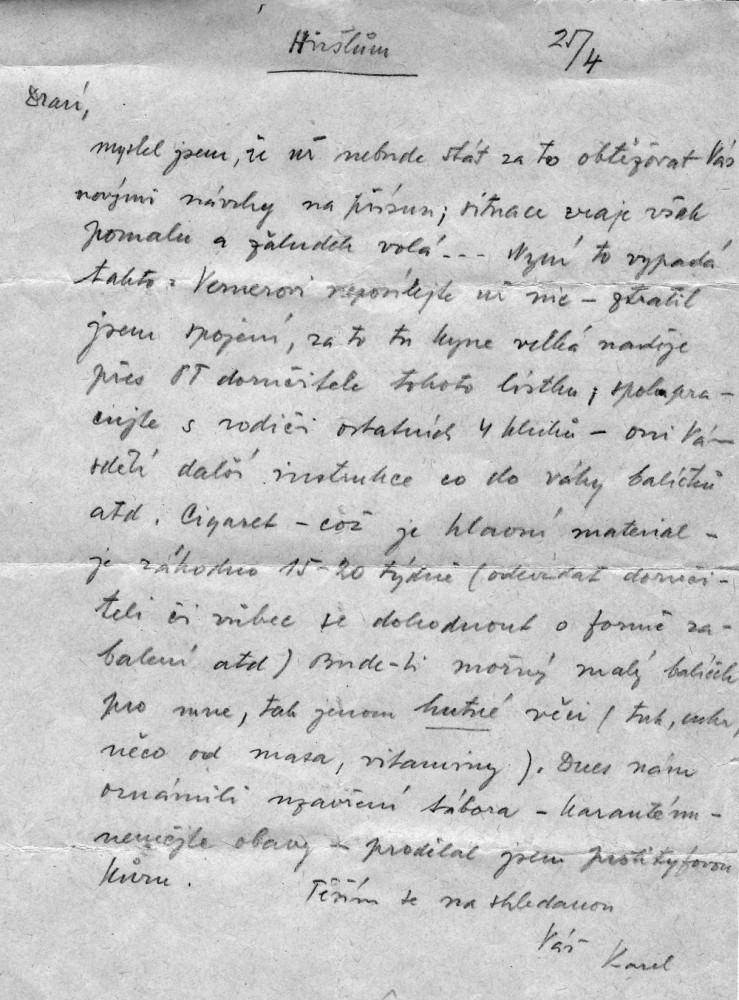 Hiršlům 25/4
Drazí,
myslel jsem, že už nebude stát za to obtěžovat Vás
novými návrhy na přísun; situace zraje však
pomalu a žaludek volá --- Nyní to vypadá
takto: Vernerovi neposílejte už nic – ztratil
jsem spojení, za to tu kyne velká naděje
přes doručitele tohoto lístku; spolupra-
cujte s rodiči ostatních 4 kluků – oni Vám
sdělí další instrukce co do váhy balíčků
atd. Cigaret – což je hlavní material –
je záhodno 15-20 týdně (odevzdat doruči-
teli či vůbec se dohodnout o formě za-
balení atd) Bude-li možný malý balíček
pro mne, tak jenom hutné věci (tuk, cukr,
něco od masa, vitaminy). Dnes nám
oznámili uzavření tábora – karanténu –
nemějte obavy – prodělal jsem protityfovou
kůru.
Těším se na shledanou
Váš
Karel